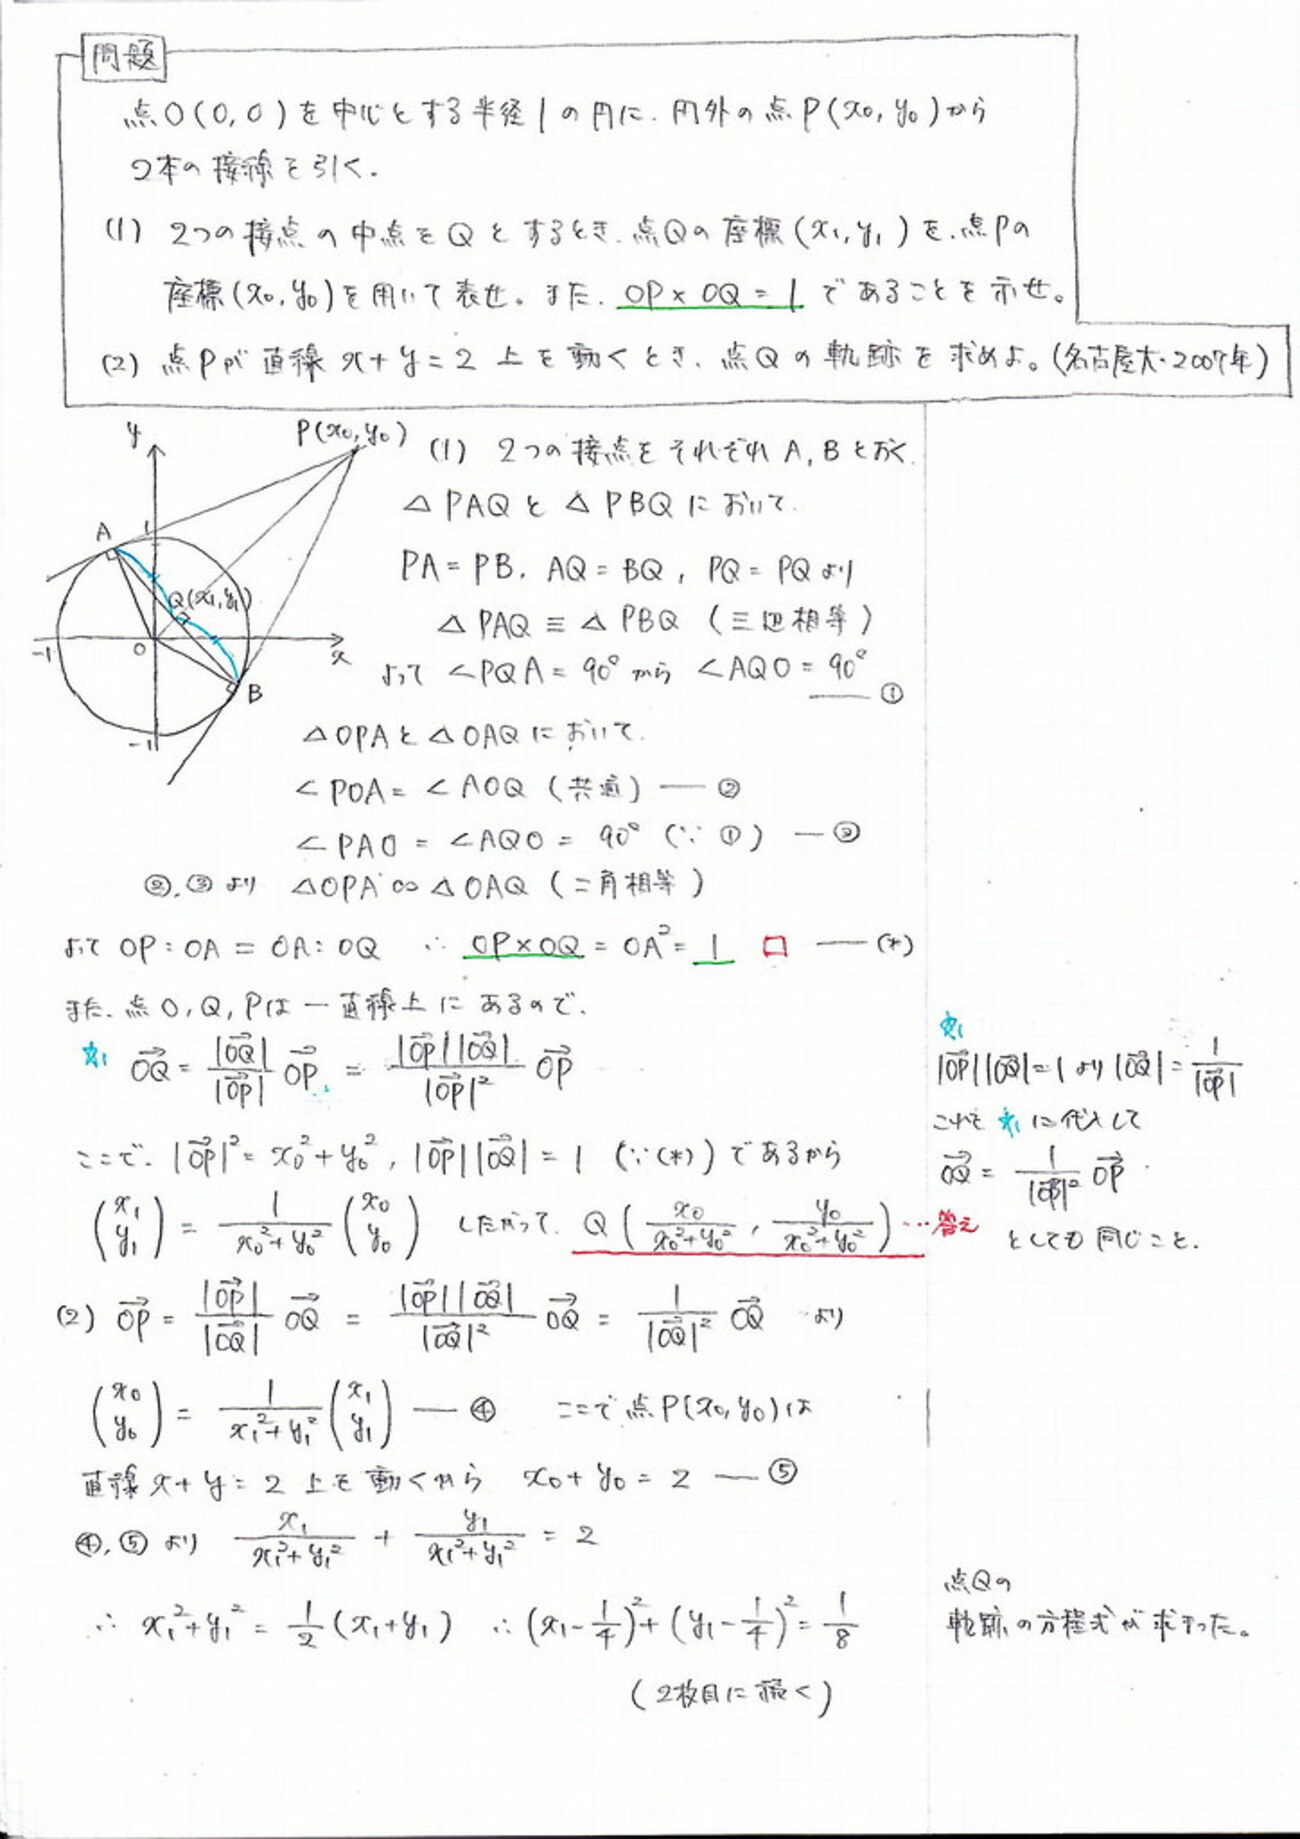 問題
点O(0,0)を中心とする半径1の円に、円外の点P(x₀,y₀)から
2本の接線を引く。
(1) 2つの接点の中点をQとするとき、点Qの座標(x₁,y₁)を、点Pの
座標(x₀,y₀)を用いて表せ。また、OP×OQ=1であることを示せ。
(2) 点Pが直線x+y=2上を動くとき、点Qの軌跡を求めよ。(名古屋大・2007年)
y
P(x₀,y₀)
A
1
Q(x₁,y₁)
-1
O
x
B
-1
(1) 2つの接点をそれぞれA,Bとおく.
△PAQと△PBQにおいて.
PA=PB, AQ=BQ, PQ=PQより
△PAQ≡△PBQ (三辺相等)
よって∠PQA=90°から∠AQO=90° ―①
△OPAと△OAQにおいて.
∠POA=∠AOQ (共通) ―②
∠PAO=∠AQO=90° (∵①) ―③
②,③より △OPA∽△OAQ (二角相等)
よってOP:OA=OA:OQ ∴ OP×OQ=OA²=1 □ ―(*)
また、点O,Q,Pは一直線上にあるので、
☆₁ \vec{OQ} = \frac{|\vec{OQ}|}{|\vec{OP}|} \vec{OP} = \frac{|\vec{OP}||\vec{OQ}|}{|\vec{OP}|²} \vec{OP}
☆₁
|\vec{OP}||\vec{OQ}|=1より|\vec{OQ}|=\frac{1}{|\vec{OP}|}
これを☆₁に代入して
\vec{OQ} = \frac{1}{|\vec{OP}|²} \vec{OP}
としても同じこと.
ここで、|\vec{OP}|²=x₀²+y₀², |\vec{OP}||\vec{OQ}|=1 (∵(*))であるから
\begin{pmatrix} x₁ \\ y₁ \end{pmatrix} = \frac{1}{x₀²+y₀²} \begin{pmatrix} x₀ \\ y₀ \end{pmatrix} したがって、Q(\frac{x₀}{x₀²+y₀²}, \frac{y₀}{x₀²+y₀²}) …答え
(2) \vec{OP} = \frac{|\vec{OP}|}{|\vec{OQ}|} \vec{OQ} = \frac{|\vec{OP}||\vec{OQ}|}{|\vec{OQ}|²} \vec{OQ} = \frac{1}{|\vec{OQ}|²} \vec{OQ} より
\begin{pmatrix} x₀ \\ y₀ \end{pmatrix} = \frac{1}{x₁²+y₁²} \begin{pmatrix} x₁ \\ y₁ \end{pmatrix} ―④ ここで点P(x₀,y₀)は
直線x+y=2上を動くから x₀+y₀=2 ―⑤
④,⑤より \frac{x₁}{x₁²+y₁²} + \frac{y₁}{x₁²+y₁²} = 2
∴ x₁²+y₁² = \frac{1}{2}(x₁+y₁) ∴ (x₁-\frac{1}{4})²+(y₁-\frac{1}{4})²=\frac{1}{8}
点Qの
軌跡の方程式が求まった。
(2枚目に続く)